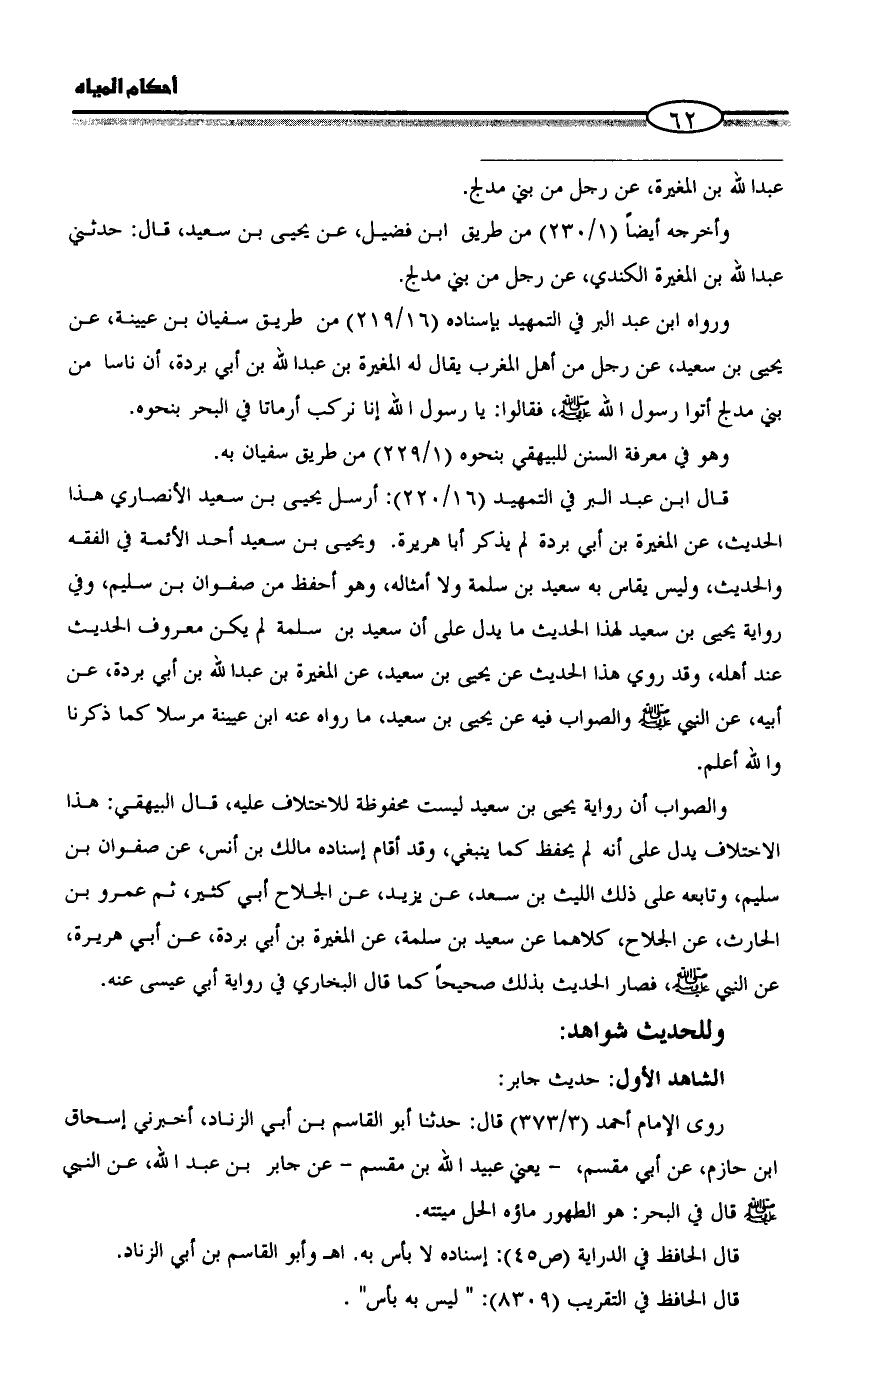 أحكام المياه
٦٢
عبدالله بن المغيرة، عن رجل من بني مدلج.
وأخرجه أيضاً (٢٣٠/١) من طريق ابن فضيل، عن يحيى بن سعيد، قال: حدثني
عبدالله بن المغيرة الكندي، عن رجل من بني مدلج.
ورواه ابن عبد البر في التمهيد بإسناده (٢١٩/١٦) من طريق سفيان بن عيينة، عن
يحيى بن سعيد، عن رجل من أهل المغرب يقال له المغيرة بن عبدالله بن أبي بردة، أن ناسا من
بني مدلج أتوا رسول الله ﷺ، فقالوا: يا رسول الله إنا نركب أرماثا في البحر بنحوه.
وهو في معرفة السنن للبيهقي بنحوه (٢٢٩/١) من طريق سفيان به.
قال ابن عبد البر في التمهيد (٢٢٠/١٦): أرسل يحيى بن سعيد الأنصاري هذا
الحديث، عن المغيرة بن أبي بردة لم يذكر أبا هريرة. ويحيى بن سعيد أحد الأئمة في الفقه
والحديث، وليس يقاس به سعيد بن سلمة ولا أمثاله، وهو أحفظ من صفوان بن سليم، وفي
رواية يحيى بن سعيد لهذا الحديث ما يدل على أن سعيد بن سلمة لم يكن معروف الحديث
عند أهله، وقد روي هذا الحديث عن يحيى بن سعيد، عن المغيرة بن عبدالله بن أبي بردة، عن
أبيه، عن النبي ﷺ والصواب فيه عن يحيى بن سعيد، ما رواه عنه ابن عيينة مرسلا كما ذكرنا
والله أعلم.
والصواب أن رواية يحيى بن سعيد ليست محفوظة للاختلاف عليه، قال البيهقي: هذا
الاختلاف يدل على أنه لم يحفظ كما ينبغي، وقد أقام إسناده مالك بن أنس، عن صفوان بن
سليم، وتابعه على ذلك الليث بن سعد، عن يزيد، عن الجلاح أبي كثير، ثم عمرو بن
الحارث، عن الجلاح، كلاهما عن سعيد بن سلمة، عن المغيرة بن أبي بردة، عن أبي هريرة،
عن النبي ﷺ، فصار الحديث بذلك صحيحاً كما قال البخاري في رواية أبي عيسى عنه.
وللحديث شواهد:
الشاهد الأول: حديث جابر:
روى الإمام أحمد (٣٧٣/٣) قال: حدثنا أبو القاسم بن أبي الزناد، أخبرني إسحاق
ابن حازم، عن أبي مقسم، - يعني عبيد الله بن مقسم - عن جابر بن عبد الله، عن النبي
ﷺ قال في البحر: هو الطهور ماؤه الحل ميتته.
قال الحافظ في الدراية (ص٤٥): إسناده لا بأس به. اهـ وأبو القاسم بن أبي الزناد.
قال الحافظ في التقريب (٨٣٠٩): " ليس به بأس" .